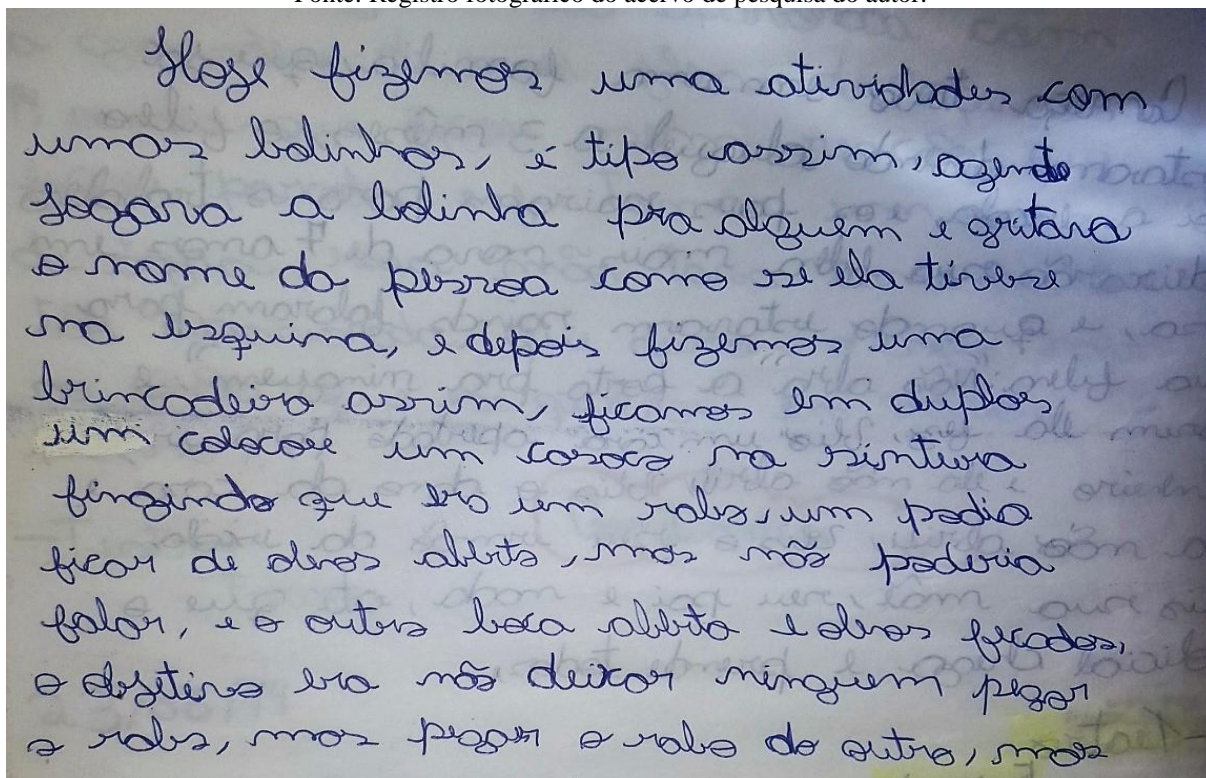 Fonte: Registro fotográfico do acervo de pesquisa do autor.
Hoje fizemos uma atividades com
umas bolinhas, é tipo assim, agente
jogava a bolinha pra alguém e gritava
o nome da pessoa como se ela tivese
na esquina, e depois fizemos uma
brincadeira assim, ficamos em duplas
um colocou um casaco na sintura
fingindo que era um rabo, um podia
ficar de olhos abertos, mas não poderia
falar, e o outro boca aberta e olhos fecados,
o objetivo era não deixar ninguem pegar
o rabo, mas pegar o rabo do outro, mas